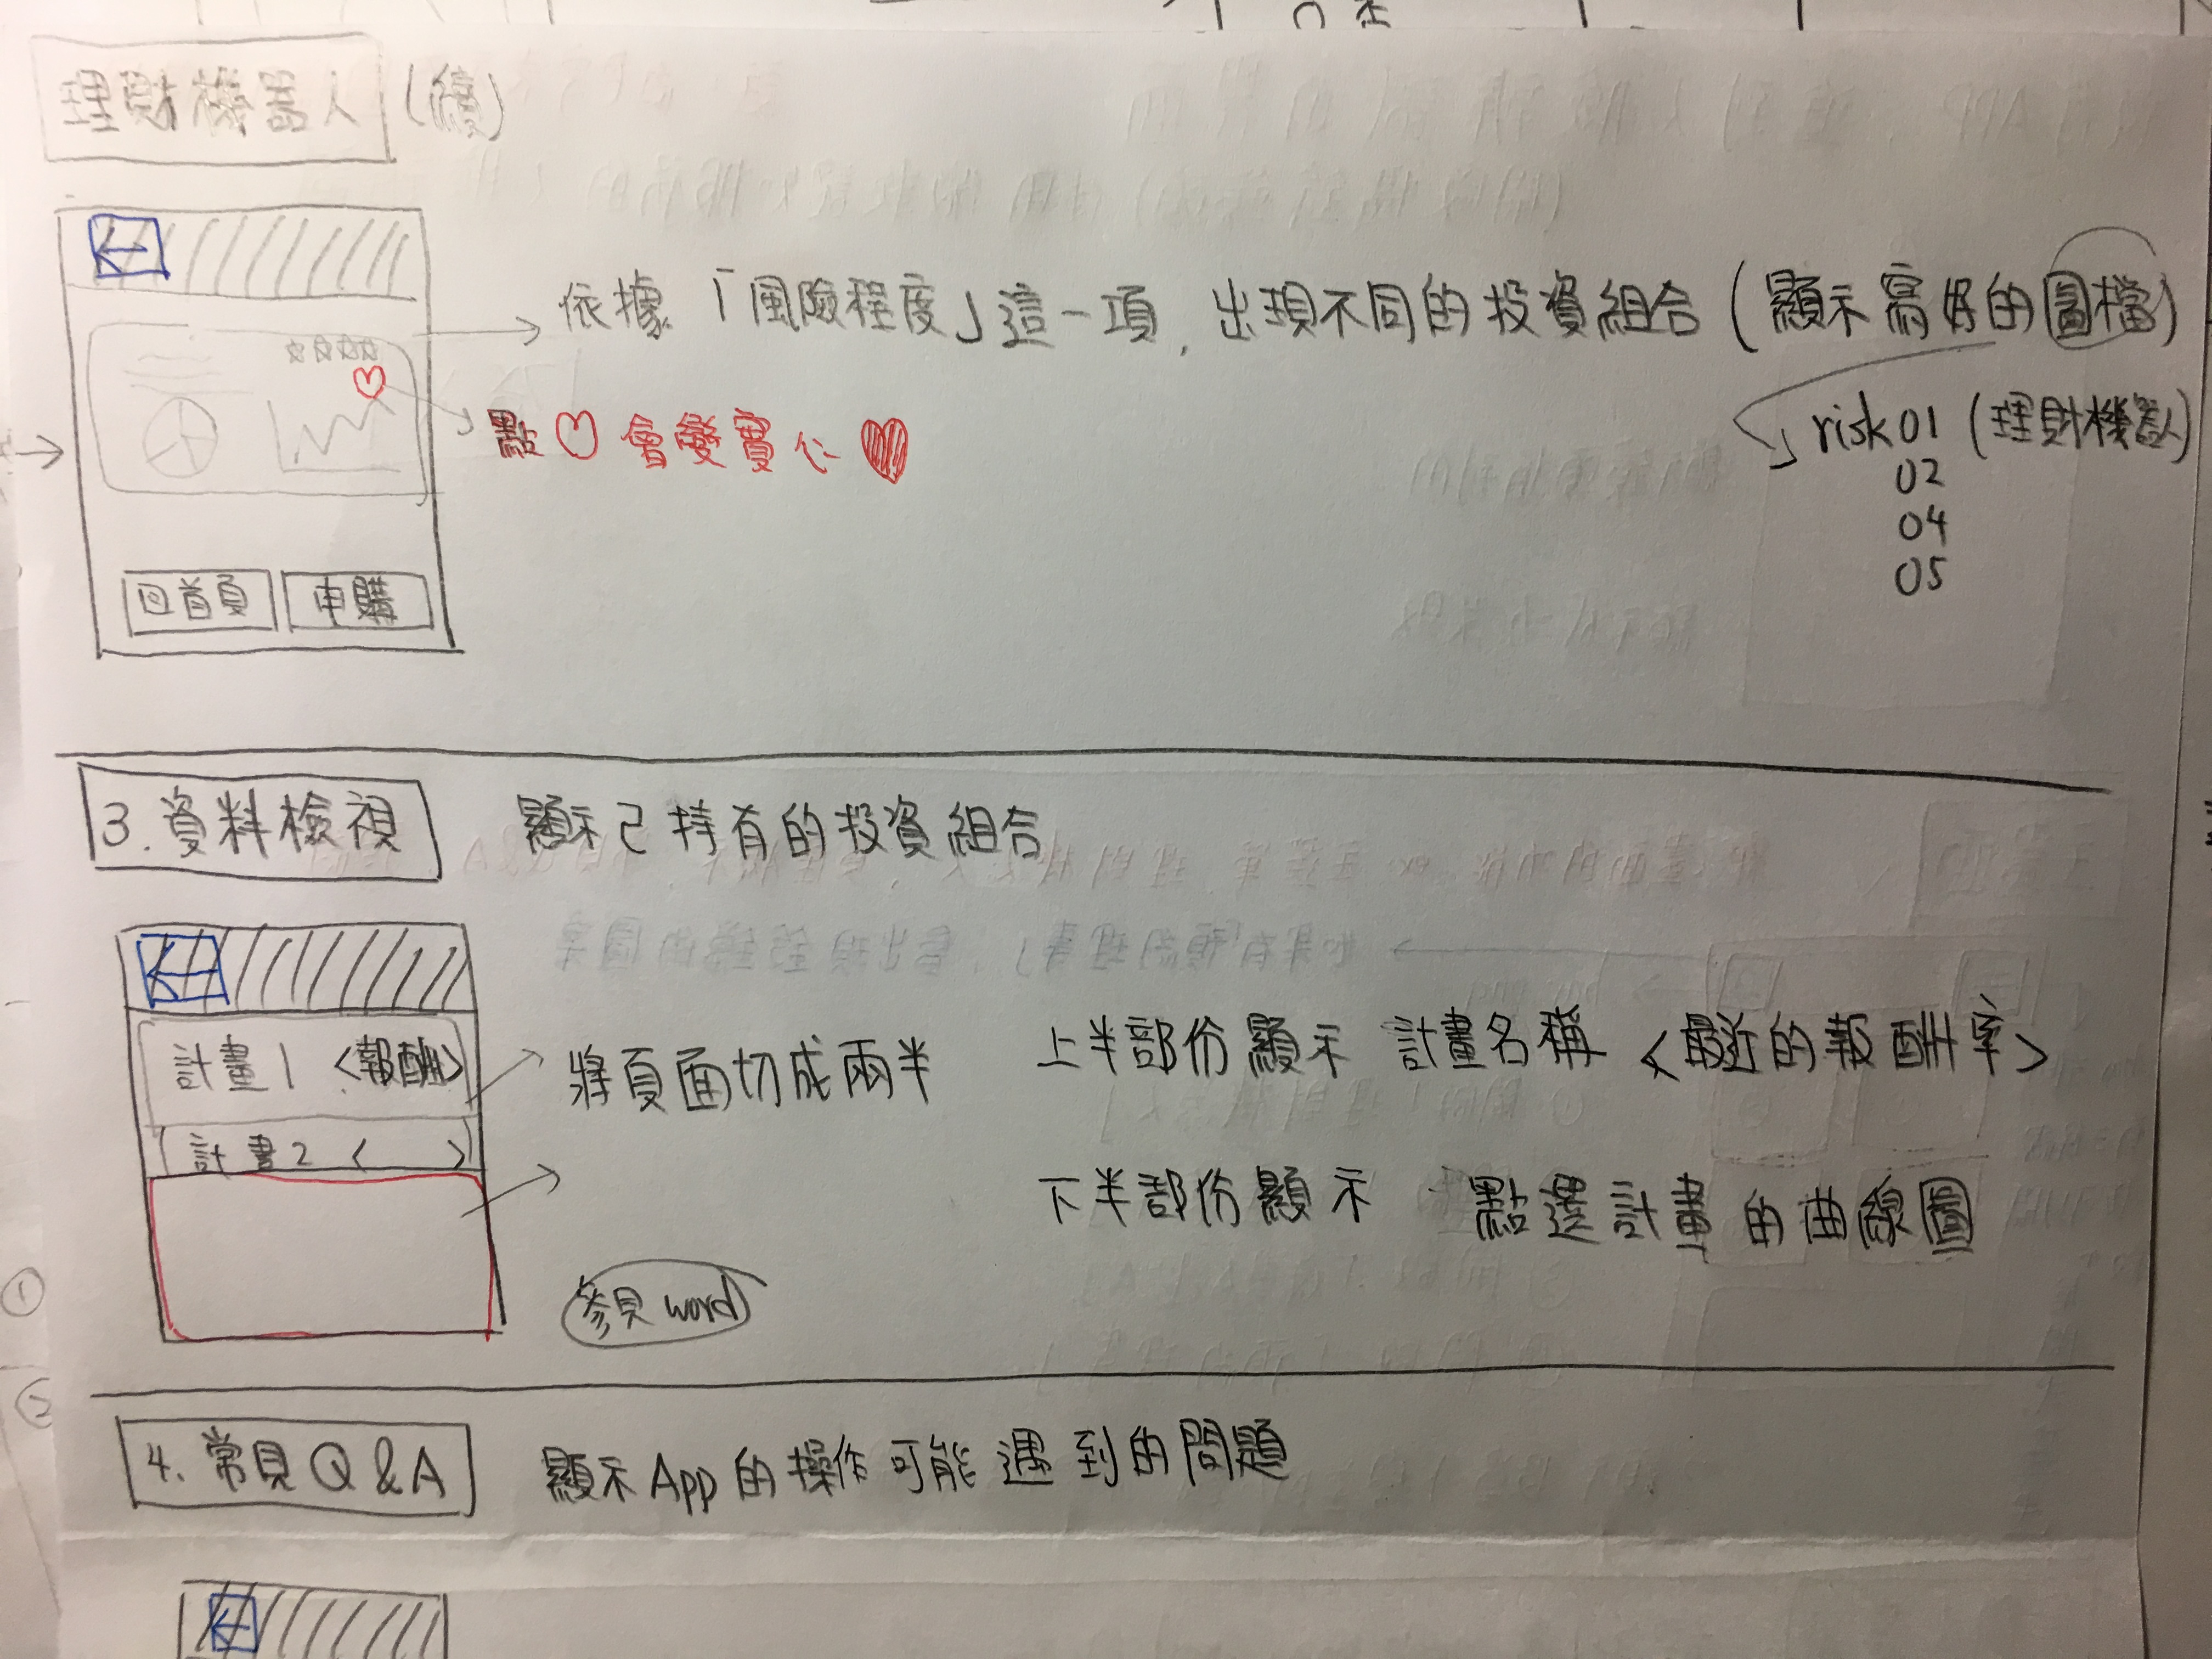 理財機器人 (續)
依據「風險程度」這一項, 出現不同的投資組合 (顯示寫好的圖檔)
點♡會變實心♥
risk 01 (理財機器人)
02
04
05
回首頁 申購
3. 資料檢視 顯示已持有的投資組合
計畫1 <報酬>
計畫2 < >
將頁面切成兩半
上半部份顯示 計畫名稱 <最近的報酬率>
下半部份顯示 點選計畫的曲線圖
參見 word
①
②
4. 常見 Q & A 顯示 App 的操作可能遇到的問題